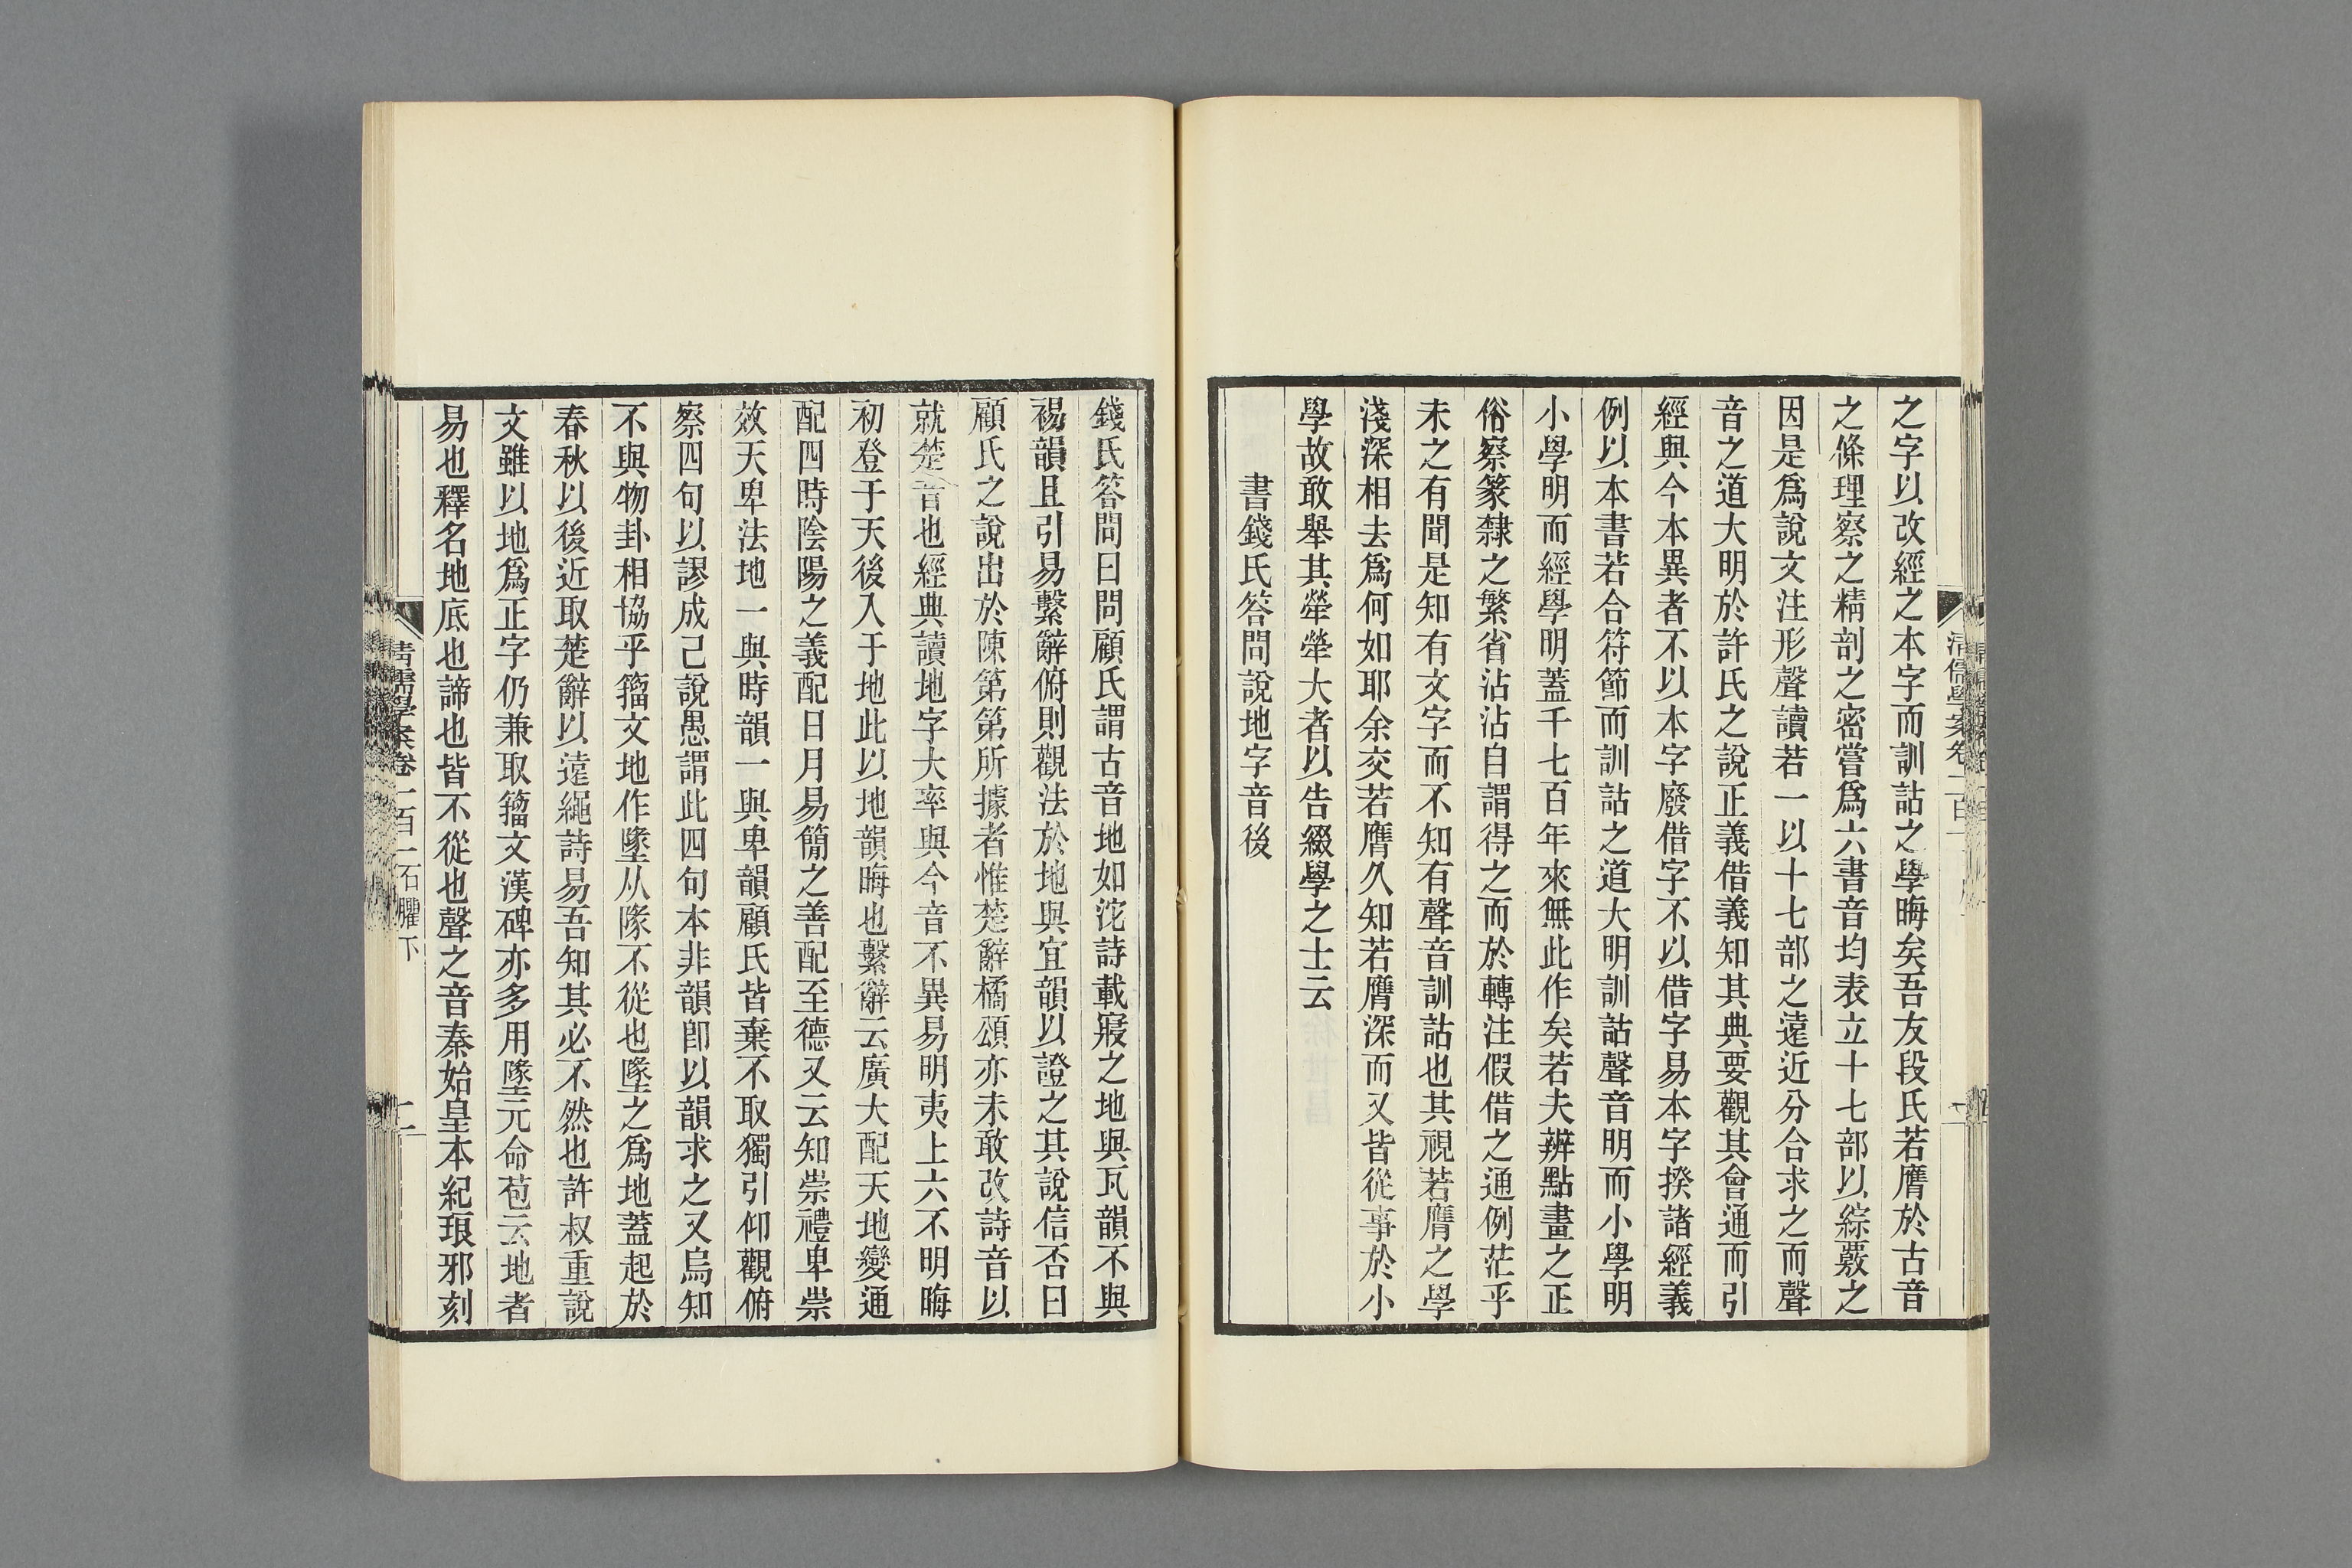 之字以改經之本字而訓詁之學晦矣吾友段氏若膺於古音
之條理察之精剖之密嘗爲六書音均表立十七部以綜覈之
因是爲說文注形聲讀若一以十七部之遠近分合求之而聲
音之道大明於許氏之說正義借義知其典要觀其會通而引
經與今本異者不以本字廢借字不以借字易本字揆諸經義
例以本書若合符節而訓詁之道大明訓詁聲音明而小學明
小學明而經學明蓋千七百年來無此作矣若夫辨點畫之正
俗察篆隸之繁省沾沾自謂得之而於轉注假借之通例茫乎
未之有聞是知有文字而不知有聲音訓詁也其視若膺之學
淺深相去爲何如耶余交若膺久知若膺深而又皆從事於小
學故敢舉其犖犖大者以告綴學之士云
書錢氏答問說地字音後
錢氏答問曰問顧氏謂古音地如沱詩載寢之地與瓦韻不與
裼韻且引易繫辭俯則觀法於地與宜韻以證之其說信否曰
顧氏之說出於陳第第所據者惟楚辭橘頌亦未敢改詩音以
就楚音也經典讀地字大率與今音不異易明夷上六不明晦
初登于天後入于地此以地韻晦也繫辭云廣大配天地變通
配四時陰陽之義配日月易簡之善配至德又云知崇禮卑崇
效天卑法地一與時韻一與卑韻顧氏皆棄不取獨引仰觀俯
察四句以謬成己說愚謂此四句本非韻卽以韻求之又烏知
不與物卦相協乎籀文地作墬从隊不從也墬之爲地蓋起於
春秋以後近取楚辭以遠繩詩易吾知其必不然也許叔重說
文雖以地爲正字仍兼取籀文漢碑亦多用墬元命苞云地者
易也釋名地底也諦也皆不從也聲之音秦始皇本紀琅邪刻
清儒學案卷一百一石臞下
二